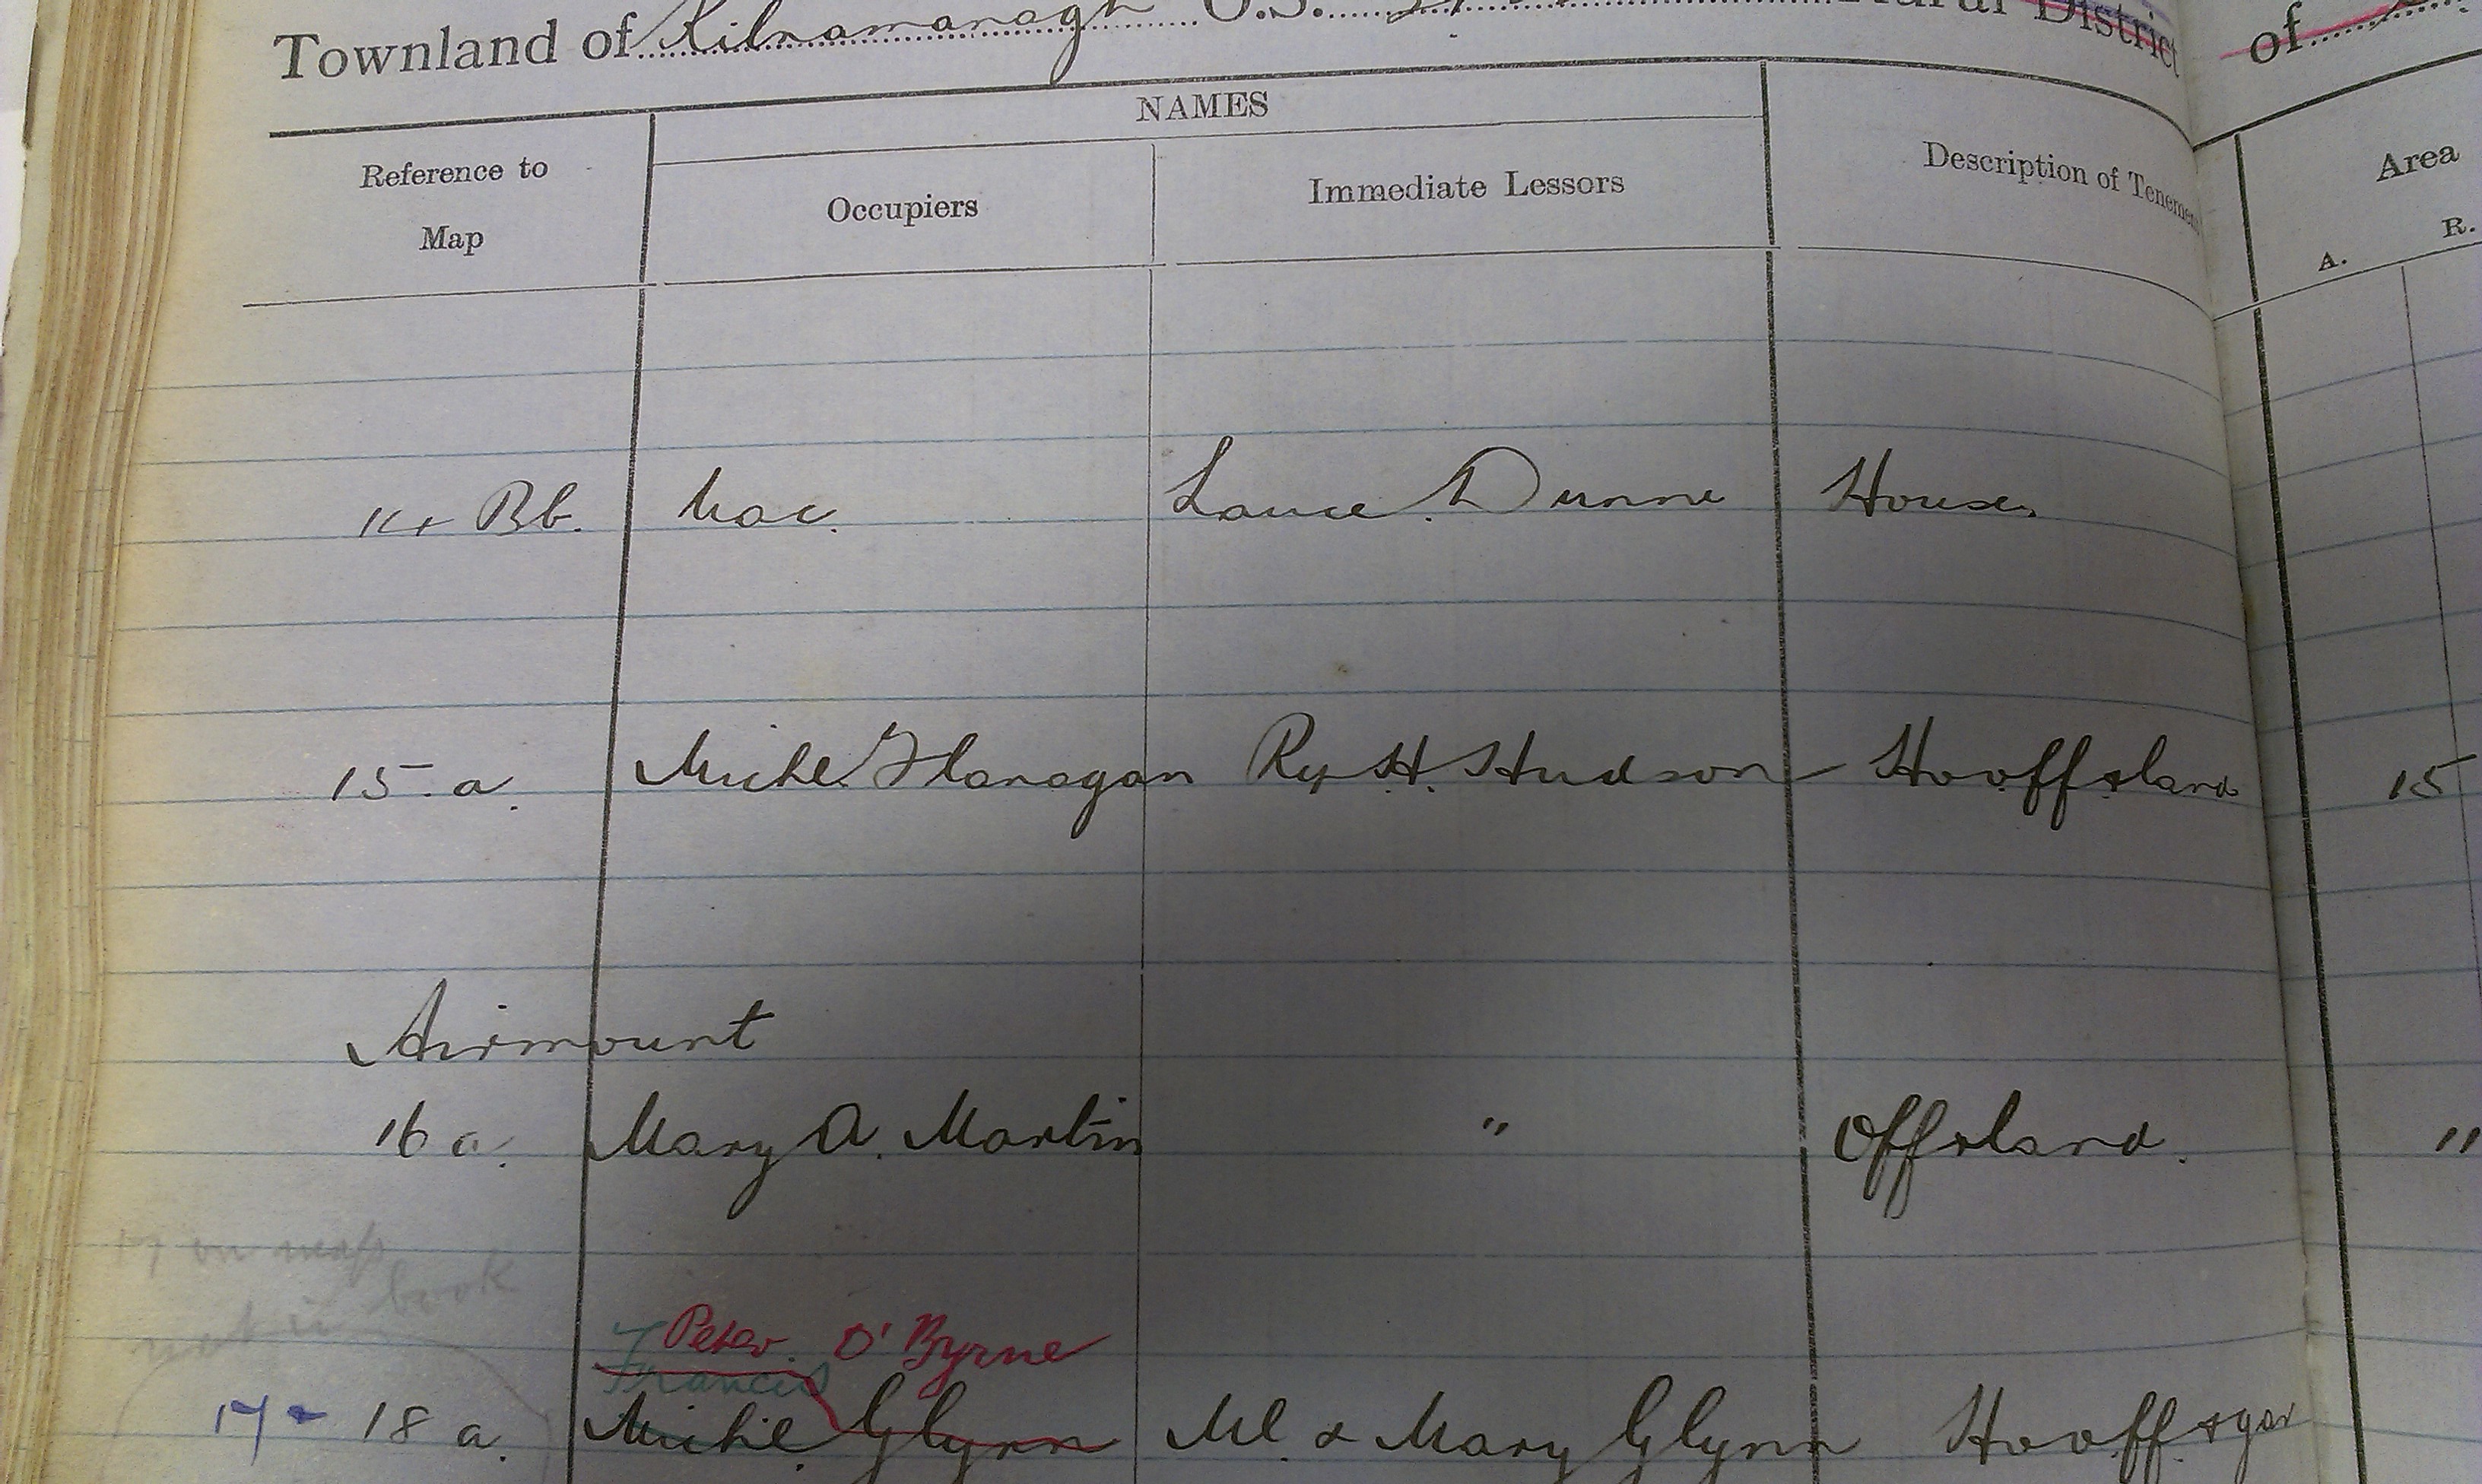 Townland of Kilnamanagh O.S. Rural District of
NAMES
Reference to Map
Occupiers
Immediate Lessors
Description of Tenement
Area
A. R.
14 Bb. Vac. Lauce. Dunne House,
15. a. Michl. Flanagan Ry. H. Hudson Ho.off&land 15
Airmount
16 a. Mary A. Martin " Off&land. "
17 on map
not in book
Peter O'Byrne
Francis
17- 18 a. Michl. Glynn Ml. & Mary Glynn Ho.off.&gar